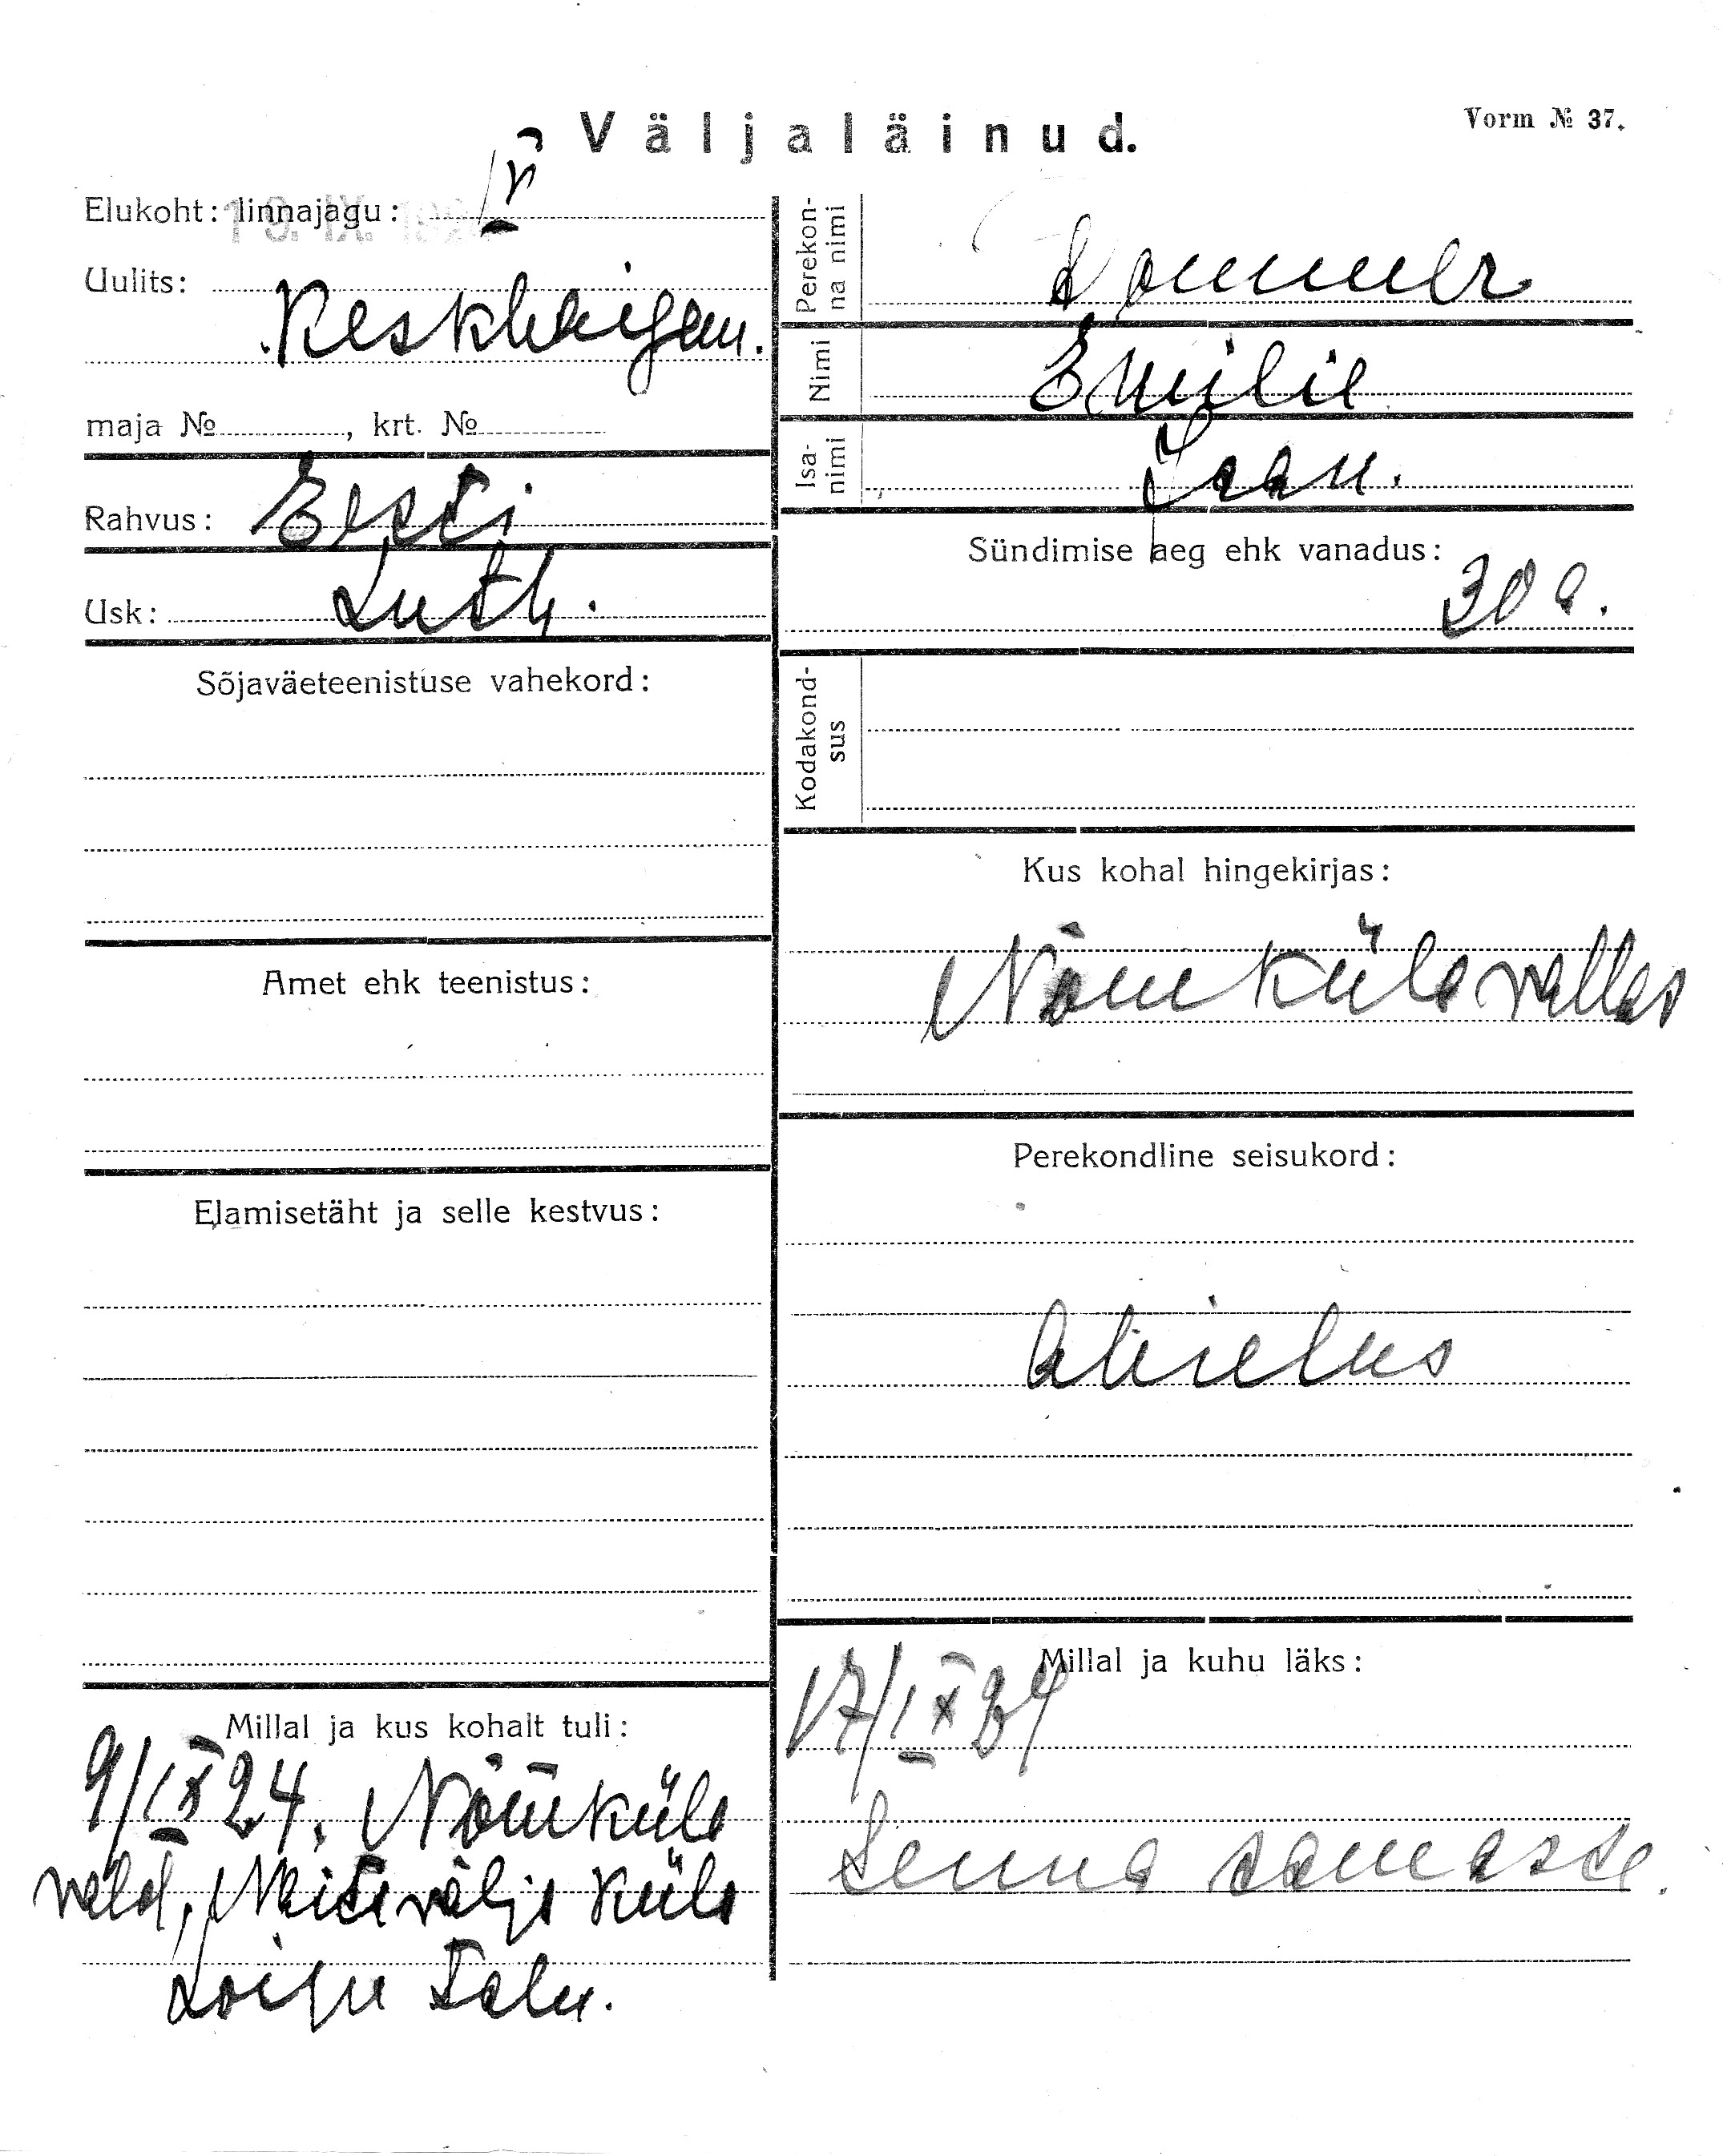 Väljaläinud.
Vorm № 37.
Elukoht: linnajagu: IV
Uulits:
Keskhaigem.
maja № , krt. №
Rahvus: Eesti
Usk: Luth.
Sõjaväeteenistuse vahekord:
Amet ehk teenistus:
Elamisetäht ja selle kestvus:
Millal ja kus kohalt tuli:
9/IX 24. Nõmküla
vald, Neitsivälja küla
Loigu talu.
Perekon-
na nimi
Nimi Emilie
Isa-
nimi Jaan.
Sündimise aeg ehk vanadus:
30 a.
Kodakond-
sus
Kus kohal hingekirjas:
Nõmküla vallas
Perekondline seisukord:
abielus
Millal ja kuhu läks:
17/IX 24
Senna samasse.